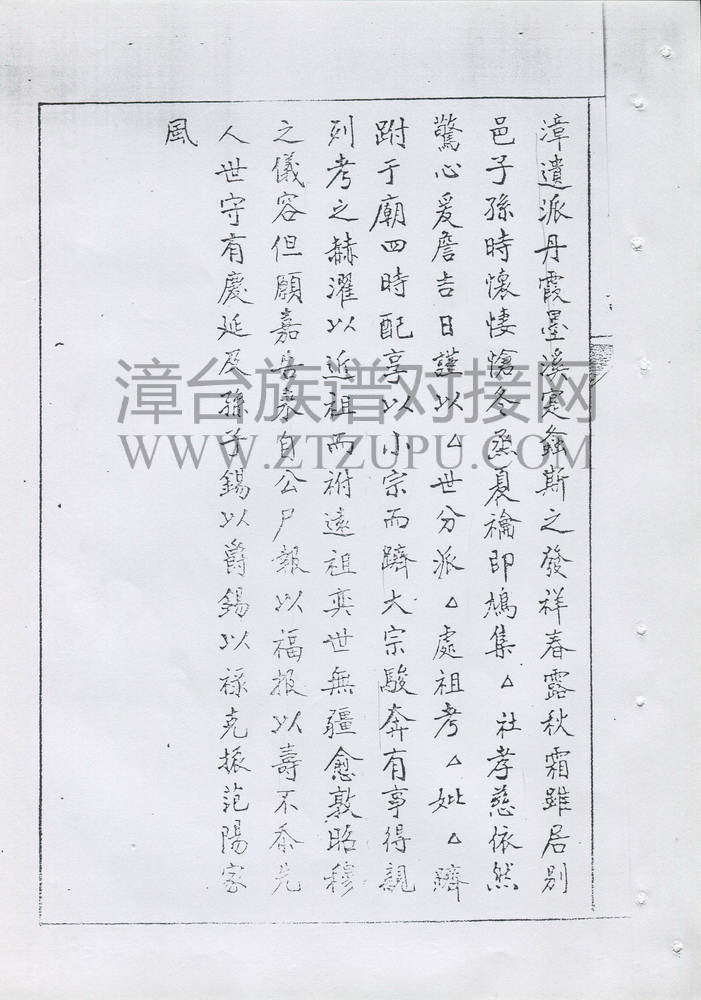 漳遺派丹霞墨溪寔螽斯之發祥春露秋霜雖居別
邑子孫時懷悽愴冬烝夏禴即鳩集△社孝慈依然
驚心爰詹吉日謹以△世分派△處祖考△妣△躋
跗于廟四時配享以小宗而躋大宗駿奔有事得覩
列考之赫濯以近祖而祔遠祖奕世無疆愈敦昭穆
之儀容但願嘉告永自公尸報以福报以壽不忝先
人世守有慶延及孫子錫以爵錫以祿克振范陽家
風
漳台族谱对接网
WWW.ZTZUPU.COM